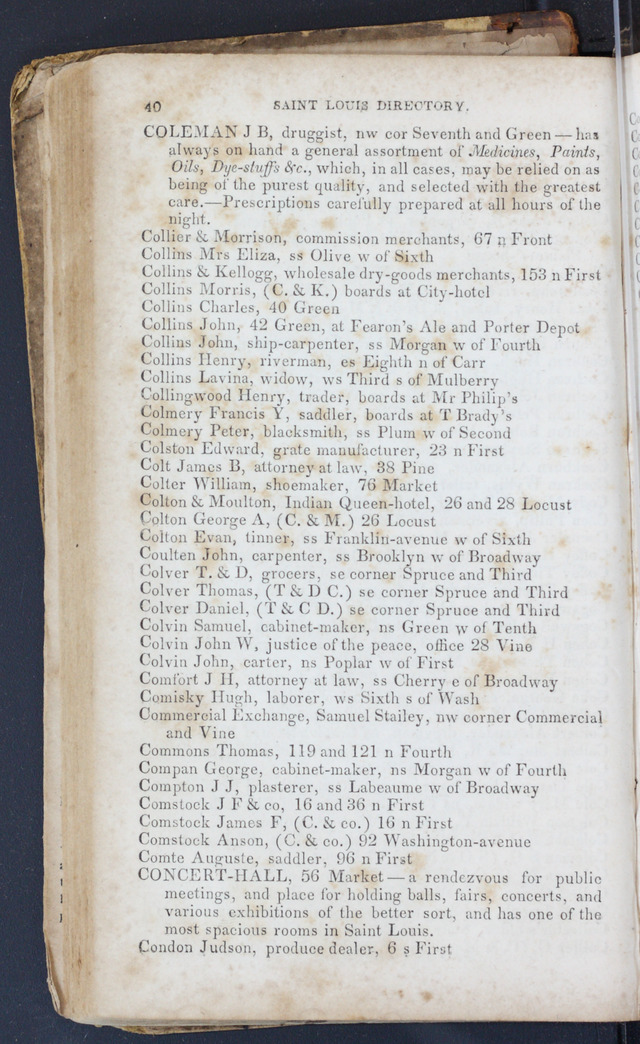 40 SAINT LOUIS DIRECTORY.
COLEMAN J B, druggist, nw cor Seventh and Green — has
always on hand a general assortment of Medicines, Paints,
Oils, Dye-stuffs &c., which, in all cases, may be relied on as
being of the purest quality, and selected with the greatest
care.—Prescriptions carefully prepared at all hours of the
night.
Collier & Morrison, commission merchants, 67 n Front
Collins Mrs Eliza, ss Olive w of Sixth
Collins & Kellogg, wholesale dry-goods merchants, 153 n First
Collins Morris, (C. & K.) boards at City-hotel
Collins Charles, 40 Green
Collins John, 42 Green, at Fearon's Ale and Porter Depot
Collins John, ship-carpenter, ss Morgan w of Fourth
Collins Henry, riverman, es Eighth n of Carr
Collins Lavina, widow, ws Third s of Mulberry
Collingwood Henry, trader, boards at Mr Philip's
Colmery Francis Y, saddler, boards at T Brady's
Colmery Peter, blacksmith, ss Plum w of Second
Colston Edward, grate manufacturer, 23 n First
Colt James B, attorney at law, 38 Pine
Colter William, shoemaker, 76 Market
Colton & Moulton, Indian Queen-hotel, 26 and 28 Locust
Colton George A, (C. & M.) 26 Locust
Colton Evan, tinner, ss Franklin-avenue w of Sixth
Coulten John, carpenter, ss Brooklyn w of Broadway
Colver T. & D, grocers, se corner Spruce and Third
Colver Thomas, (T & D C.) se corner Spruce and Third
Colver Daniel, (T & C D.) se corner Spruce and Third
Colvin Samuel, cabinet-maker, ns Green w of Tenth
Colvin John W, justice of the peace, office 28 Vine
Colvin John, carter, ns Poplar w of First
Comfort J H, attorney at law, ss Cherry e of Broadway
Comisky Hugh, laborer, ws Sixth s of Wash
Commercial Exchange, Samuel Stailey, nw corner Commercial
and Vine
Commons Thomas, 119 and 121 n Fourth
Compan George, cabinet-maker, ns Morgan w of Fourth
Compton J J, plasterer, ss Labeaume w of Broadway
Comstock J F & co, 16 and 36 n First
Comstock James F, (C. & co.) 16 n First
Comstock Anson, (C. & co.) 92 Washington-avenue
Comte Auguste, saddler, 96 n First
CONCERT-HALL, 56 Market — a rendezvous for public
meetings, and place for holding balls, fairs, concerts, and
various exhibitions of the better sort, and has one of the
most spacious rooms in Saint Louis.
Condon Judson, produce dealer, 6 s First